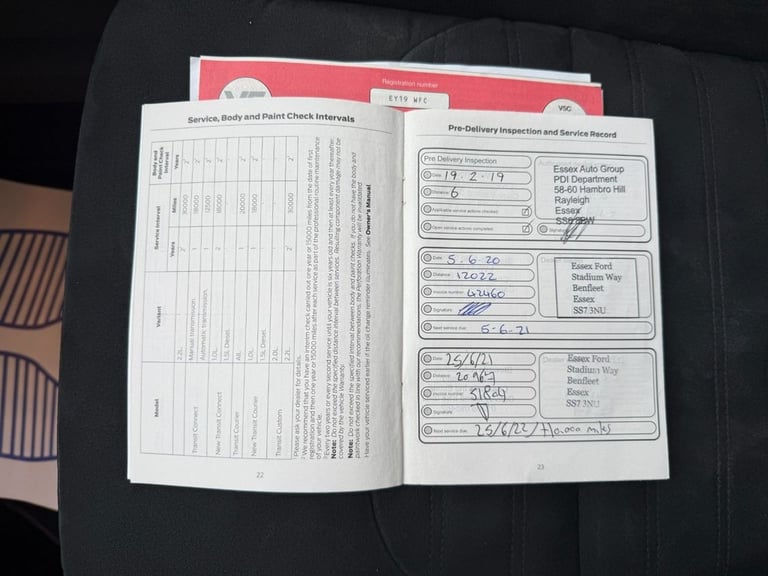 Registration number
EY19 WFC
V5C
Service, Body and Paint Check Intervals
Model
Variant
Service Interval
Body and Paint Check Interval
Years
Miles
Years
2.2L
2¹
30000
2²
Transit Connect
Manual transmission.
1
18000
2²
Automatic transmission.
1
12500
2²
New Transit Connect
1.0L
2
18000
2²
1.5L Diesel.
Transit Courier
All.
1
20000
2²
New Transit Courier
1.0L
1
18000
2²
1.5L Diesel.
Transit Custom
2.0L
2.2L
2¹
30000
2²
Please ask your dealer for details.
¹ We recommend that you have an interim check carried out one year or 15000 miles from the date of first
registration and then one year or 15000 miles after each service as part of the professional routine maintenance
of your vehicle.
² Every two years or every second service until your vehicle is six years old and then at least every year thereafter.
Note: Do not exceed the specified distance interval between services. Resulting component damage may not be
covered by the vehicle Warranty.
Note: Do not exceed the specified interval between body and paint checks. If you do not have the body and
paintwork checked in line with our recommendations, the Perforation Warranty will be invalidated.
Have your vehicle serviced earlier if the oil change reminder illuminates. See Owner's Manual.
22
Pre-Delivery Inspection and Service Record
Pre Delivery Inspection
Date 19.2.19
Distance 6
Applicable service actions checked
Open service actions completed
Essex Auto Group
PDI Department
58-60 Hambro Hill
Rayleigh
Essex
SS6 8BW
Signature
Date 5.6.20
Distance 12022
Invoice number 42460
Signature
Next service due 5-6-21
Essex Ford
Stadium Way
Benfleet
Essex
SS7 3NU
Date 25/6/21
Distance 20967
Invoice number
Signature
Next service due 25/6/22/
Dealer
Essex Ford
Stadium Way
Benfleet
Essex
SS7 3NU
23